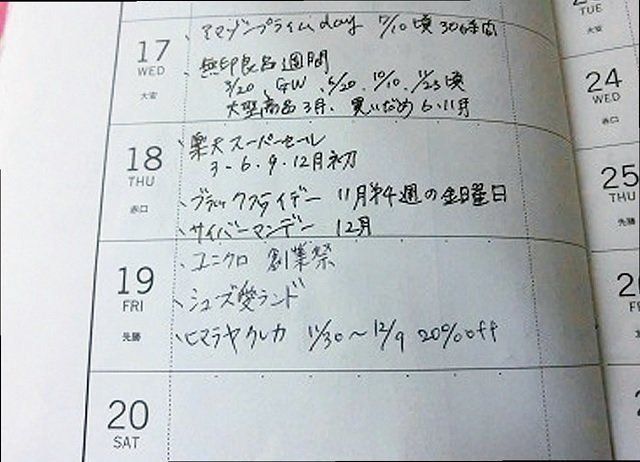 17
WED
大安
アマゾンプライムday 7/10頃 30時間
無印良品週間
3/20、GW、6/20、10/10、11/23頃
大型商品3月、買いだめ6・11月
18
THU
赤口
楽天スーパーセール
3・6・9・12月初
ブラックフライデー 11月第4週の金曜日
サイバーマンデー 12月
19
FRI
先勝
ユニクロ 創業祭
シューズ愛ランド
ヒマラヤクレカ 11/30〜12/9 20%off
20
SAT
TUE
大安
24
WED
赤口
25
THU
先勝
FRI